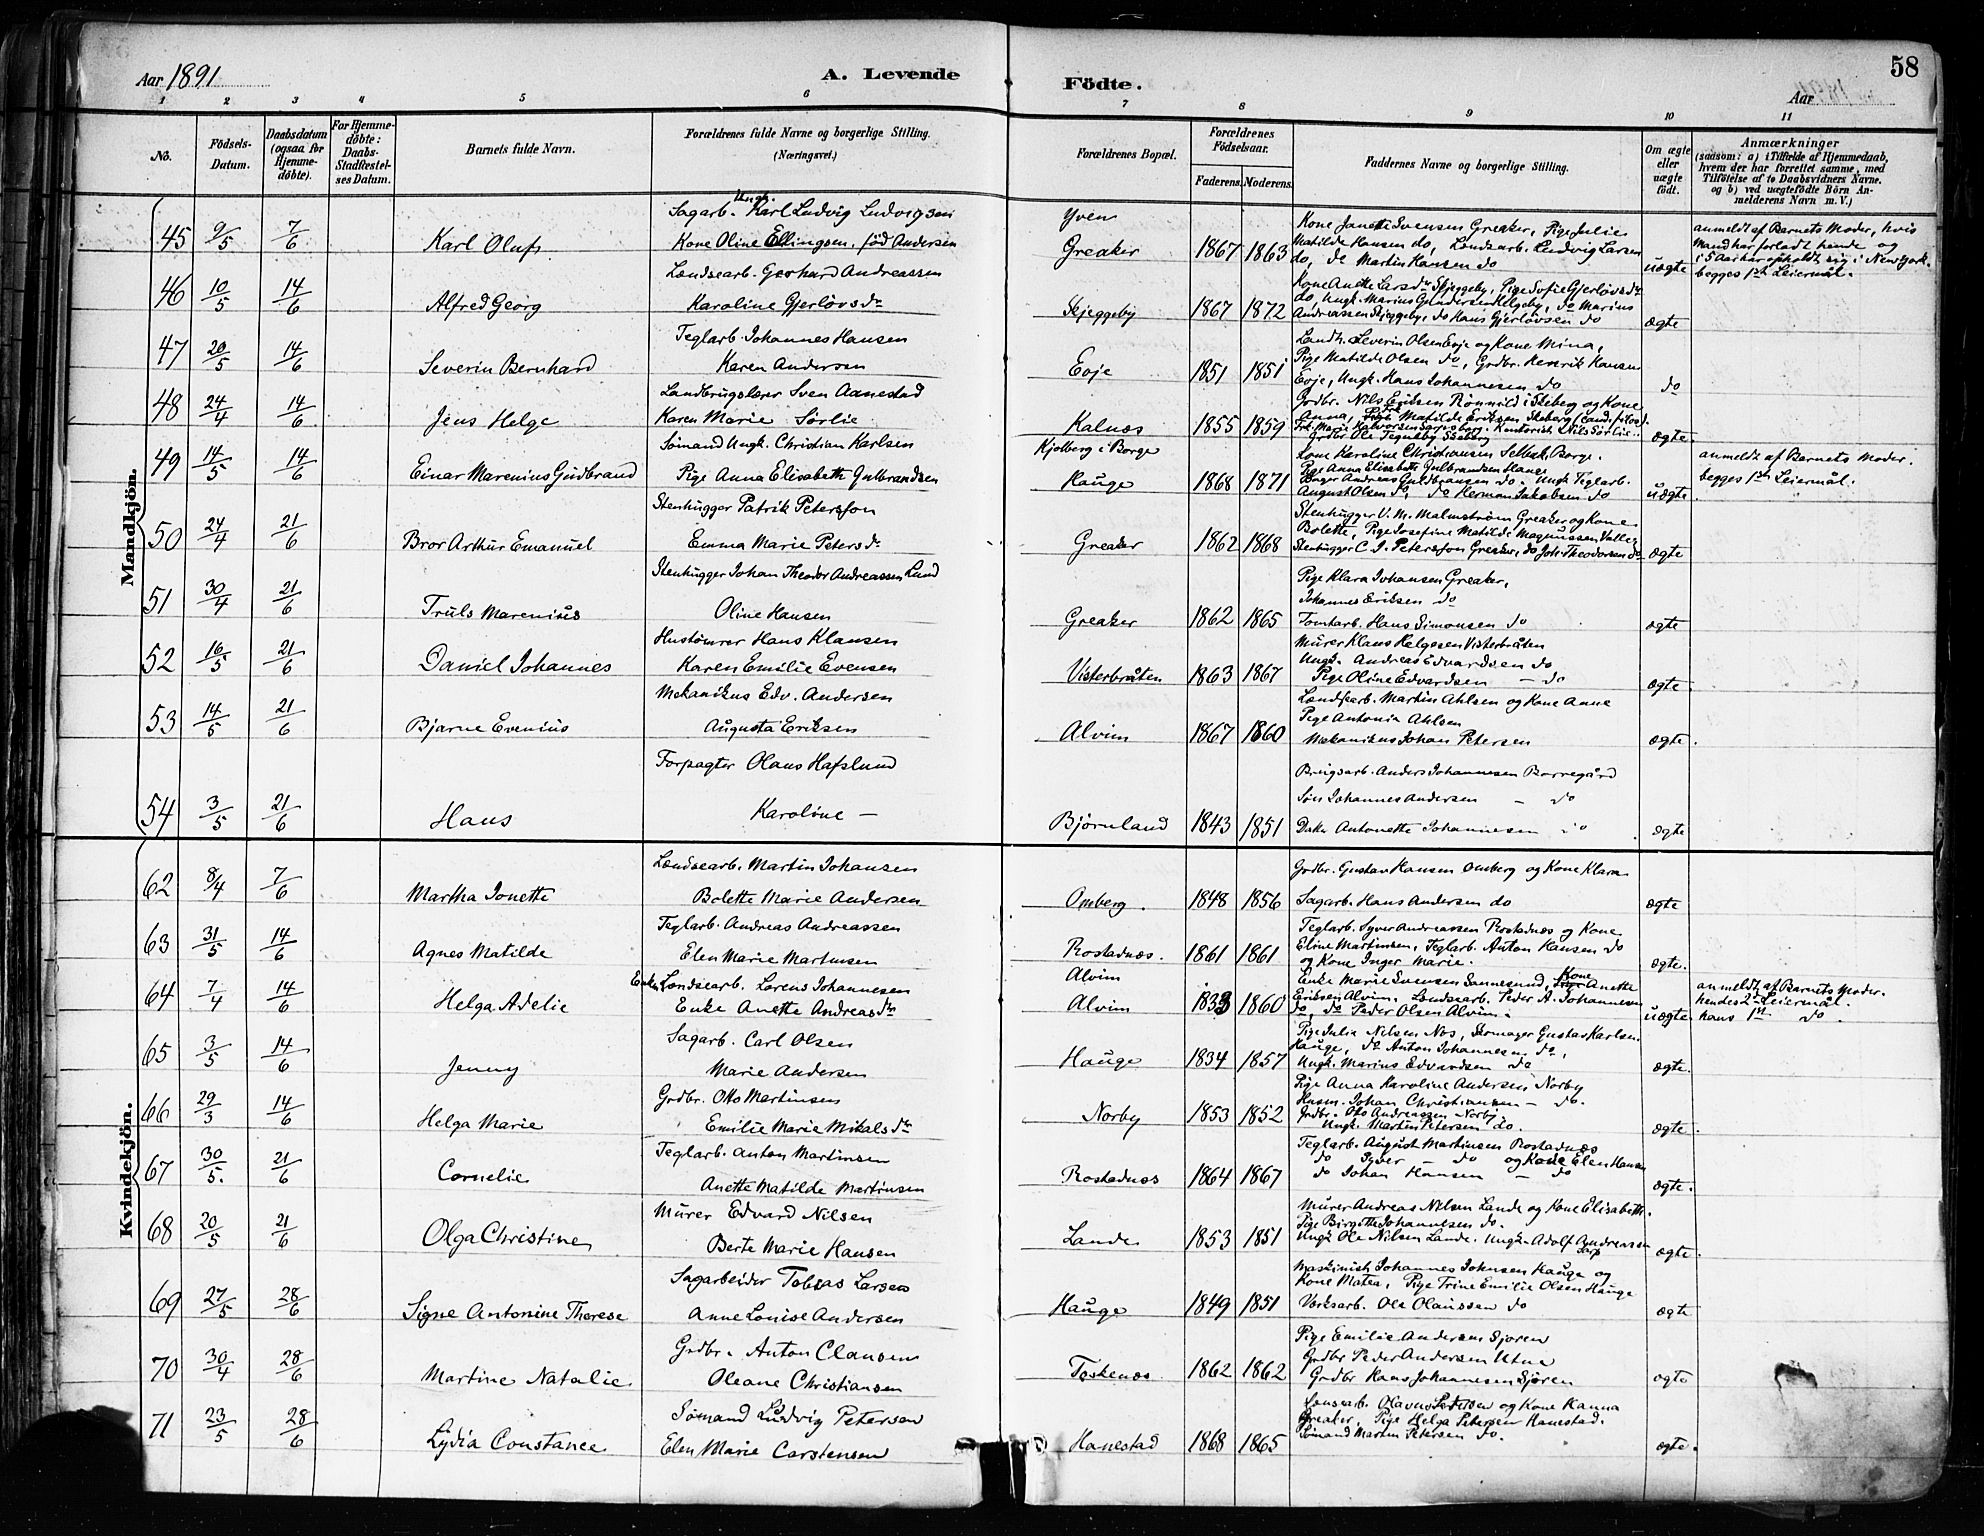 58
Aar 1891
A. Levende
Födte.
Aar
1 2 3 4 5 6 7 8 9 10 11
No.
Födsels-Datum.
Daabsdatum (ogsaa for Hjemme-döbte).
For Hjemme-döbte: Daabs-Stadfæstel-ses Datum.
Barnets fulde Navn.
Forældrenes fulde Navne og borgerlige Stilling. (Næringsvei.)
Forældrenes Bopæl.
Forældrenes Födselsaar.
Faderens. Moderens.
Faddernes Navne og borgerlige Stilling.
Om ægte eller uægte födt.
Anmærkninger (saasom: a) i Tilfælde af Hjemmedaab, hvem der har forrettet samme, med Tilföielse af to Daabsvidners Navne, og b) ved uægtefödte Börn An-melderens Navn m. V.)
Mandkjön.
45 9/5 7/6 Karl Oluf
Sagarb. Ungk. Karl Ludvig Ludvigsen
Kone Oline Ellingsen, fød Andersen
Yven
Greaker 1867 1863
Kone Janette Svensen Greaker, Pige Julie
Matilde Hansen do, Lændsarb. Ludvig Larsen
do, do Martin Hansen do
uægte
anmeldt af Barnets Moder, hvis
Mand har forladt hende og
i 5 Aar har opholdt sig i New York.
begges 1ste Leiermål.
46 10/5 14/6 Alfred Georg
Lændsearb. Gerhard Andreassen
Karoline Gjerløvsdr
Skjeggeby 1867 1872
Kone Anette Larsdr Skjeggeby, Pige Sofie Gjerløvsdr
do, Ungk. Marius Gundersen Helgeby, do Marius
Andreassen Skjeggeby, do Hans Gjerløvsen do
ægte
47 20/5 14/6 Severin Bernhard
Teglarb. Johannes Hansen
Karen Andersen
Evje 1851 1851
Landh. Severin Olsen Evje og Kone Mina,
Pige Matilde Olsen do, Grdbr. Henrik Hansen
Evje, Ungk. Hans Johannesen do
do
48 24/4 14/6 Jens Helge
Landbrugslærer Sven Aanestad
Karen Marie Sørlie
Kalnæs 1855 1859
Grdbr. Nils Eriksen Rønnild i Skeberg og Kone
Anna, Matilde Eriksen Skeberg
Frk. Marie Halvorsen Sarpsborg. Kontorist Nils Sørlie
Grdbr. Ole Tegneby Skeberg
ægte.
49 14/5 14/6 Einar Marenius Gudbrand
Sømand Ungk. Christian Karlsen
Pige Anna Elisabeth Gulbrandsen
Kjølberg i Borge
Hauge 1868 1871
Kone Karoline Christiansen Selbak, Borge.
Pige Anna Elisabeth Gulbrandsen Hauge
Bager Andreas Guldbransen do. Ungk. Teglarb.
August Olsen do, do Herman Jakobsen do
uægte
anmeldt af Barnets Moder.
begges 1ste Leiermål.
50 24/4 21/6 Bror Arthur Emanuel
Stenhugger Patrik Petersson
Emma Marie Petersdr
Greaker 1862 1868
Stenhugger V. M. Malmstrøm Greaker og Kone
Bolette, Pige Josefine Matilde Magnussen Valle
Stenhugger C. J. Petersson Greaker, do Joh. Theodorsen do
ægte
51 30/4 21/6 Truls Marenius
Stenhugger Johan Theodor Andreassen Lund
Oline Hansen
Greaker 1862 1865
Pige Klara Johansen Greaker,
Johannes Eriksen do
Tomtarb. Hans Simonsen do
ægte
52 16/5 21/6 Daniel Johannes
Hustømrer Hans Klausen
Karen Emilie Evensen
Visterbråten 1863 1867
Murer Klaus Helgesen Visterbråten
Ungk. Andreas Edvardsen do
Pige Oline Edvardsen — do
ægte.
53 14/5 21/6 Bjarne Evenius
Mekanikus Edv. Andersen
Augusta Eriksen
Alvim 1867 1860
Lændsearb. Martin Ahlsen og Kone Anne
Pige Antonia Ahlsen
Mekanikus Johan Petersen
ægte.
54 3/5 21/6 Hans
Forpagter Olaus Hafslund
Karoline —
Bjørnland 1843 1851
Brugsarb. Anders Johannesen Borregård
Søn Johannes Andersen — do
Datr Antonette Johannesen do
ægte
Kvindekjön.
62 8/4 7/6 Martha Jonette
Lændsearb. Martin Johansen
Bolette Marie Andersen
Omberg. 1848 1856
Grdbr. Gustav Hansen Omberg og Kone Klara
Sagarb. Hans Andersen do
ægte
63 31/5 14/6 Agnes Matilde
Teglarb. Andreas Andreassen
Elen Marie Martinsen
Rostadnæs. 1861 1861
Teglarb. Syver Andreassen Rostadnæs og Kone
Eline Martinsen, Teglarb. Anton Hansen do
og Kone Inger Marie.
ægte.
64 7/4 14/6 Helga Adelie
Enkem. Lændsearb. Lorens Johannesen
Enke Anette Andreasdtr
Alvim
Alvim 1833 1860
Enke Marie Svensen Sannesund, Kone Anette
Eriksen Alvim. Lændsearb. Peder A. Johannesen
do, do Peder Olsen Alvim.
uægte
anmeldt af Barnets Moder.
hendes 2det Leiermål.
hans 1ste do.
65 3/5 14/6 Jenny
Sagarb. Carl Olsen
Marie Andersen
Hauge 1834 1857
Pige Julie Nilsen Næs, Skomager Gustav Karlsen
Hauge, do Anton Johannesen do,
Ungk. Marius Edvardsen do
ægte.
66 29/3 14/6 Helga Marie
Grdbr. Otto Martinsen
Emilie Marie Mikalsdtr
Norby 1853 1852
Pige Anna Karoline Andersen Norby
Husm. Johan Christiansen — do.
Grdbr. Otto Andreassen Norby.
Ungk. Martin Petersen do.
ægte.
67 30/5. 21/6 Cornelie
Teglarb. Anton Martinsen
Anette Matilde Martinsen
Rostadnæs 1864 1867
Teglarb. August Martinsen Rostadnæs
do Syver — do og Kone Elen Hansen
do Johan Hansen — do
ægte.
68 20/5 21/6 Olga Christine
Murer Edvard Nilsen
Berte Marie Hansen
Lande 1853 1851
Murer Andreas Nilsen Lande og Kone Elisabeth.
Pige Birgitte Johannesen do.
Ungk Ole Nilsen Lande. Ungk. Adolf Andreassen
Sarp
ægte.
69 27/5 28/6 Signe Antonine Therese
Sagarbeider Tobias Larsen
Anne Louise Andersen
Hauge 1849 1851
Maskinist Johannes Johnsen Hauge og
Kone Matea, Pige Trine Emilie Olsen Hauge
Verksarb. Ole Olaussen do
ægte
70 30/4 28/6 Martine Natalie
Grdbr. Anton Clausen
Oleane Christiansen
Taskenæs 1862 1862
Pige Emilie Andersen Sjøren
Grdbr Peder Andersen Utne
Grdbr Hans Johannesen Sjøren
ægte
71 23/5 28/6 Lydia Constance
Sømand Ludvig Petersen
Elen Marie Carstensen
Hanestad 1868 1865
Lænsearb. Olavus Pettersen og Kone Hanna
Greaker, Pige Helga Petersen Hanestad.
Sømand Martin Petersen do.
ægte.